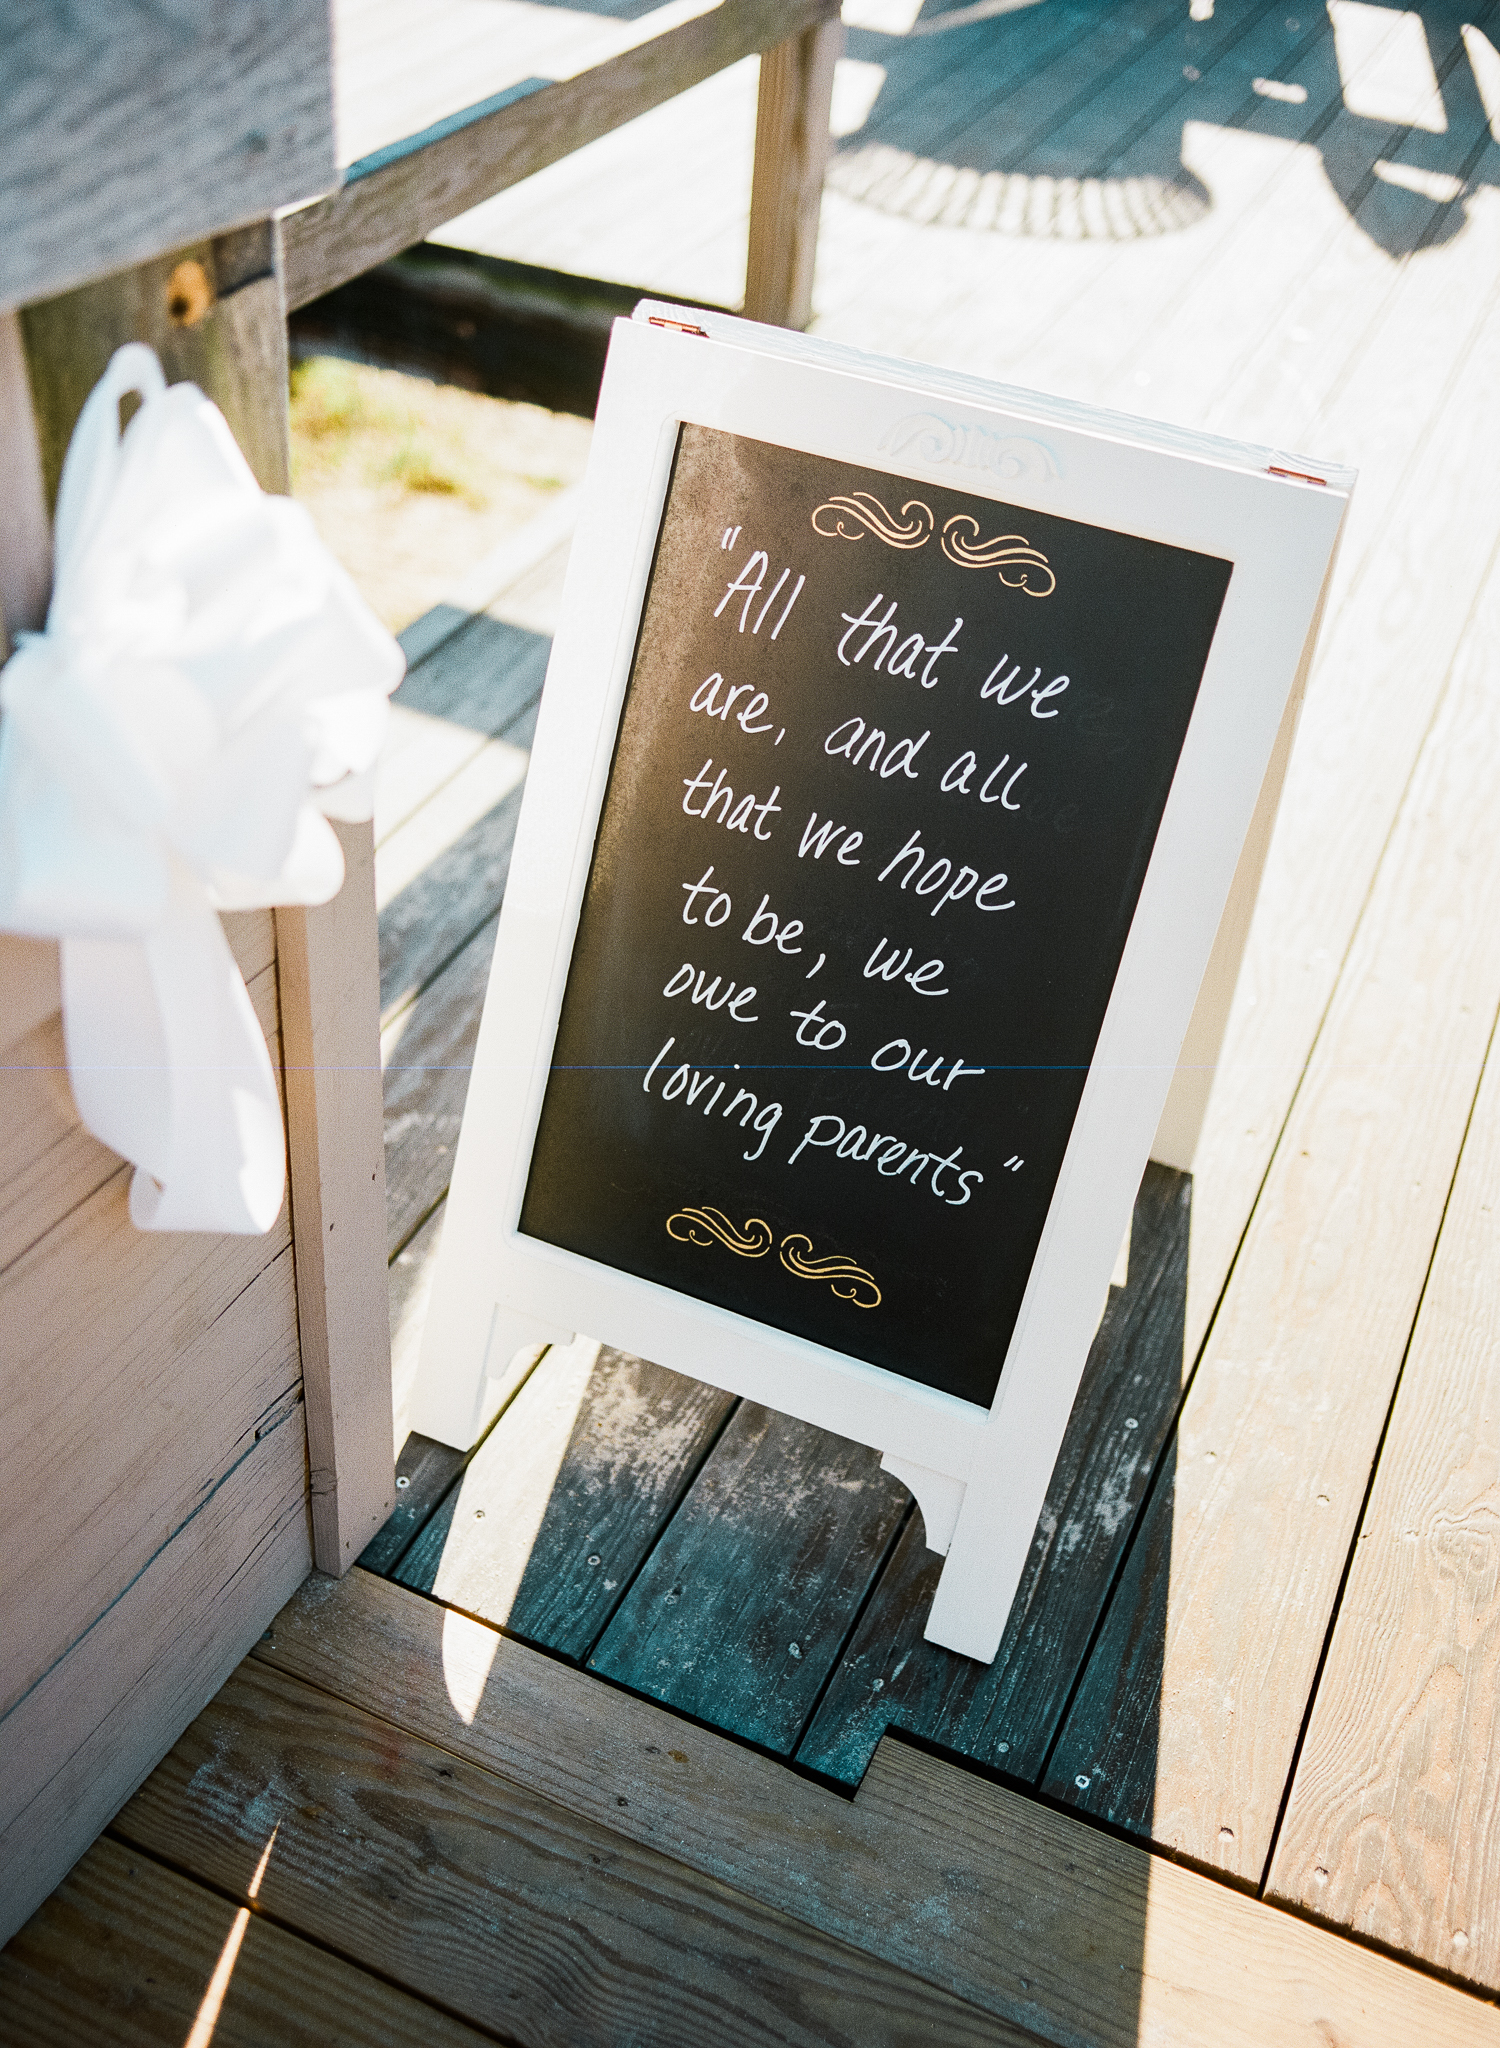 "All that we
are, and all
that we hope
to be, we
owe to our
loving parents"